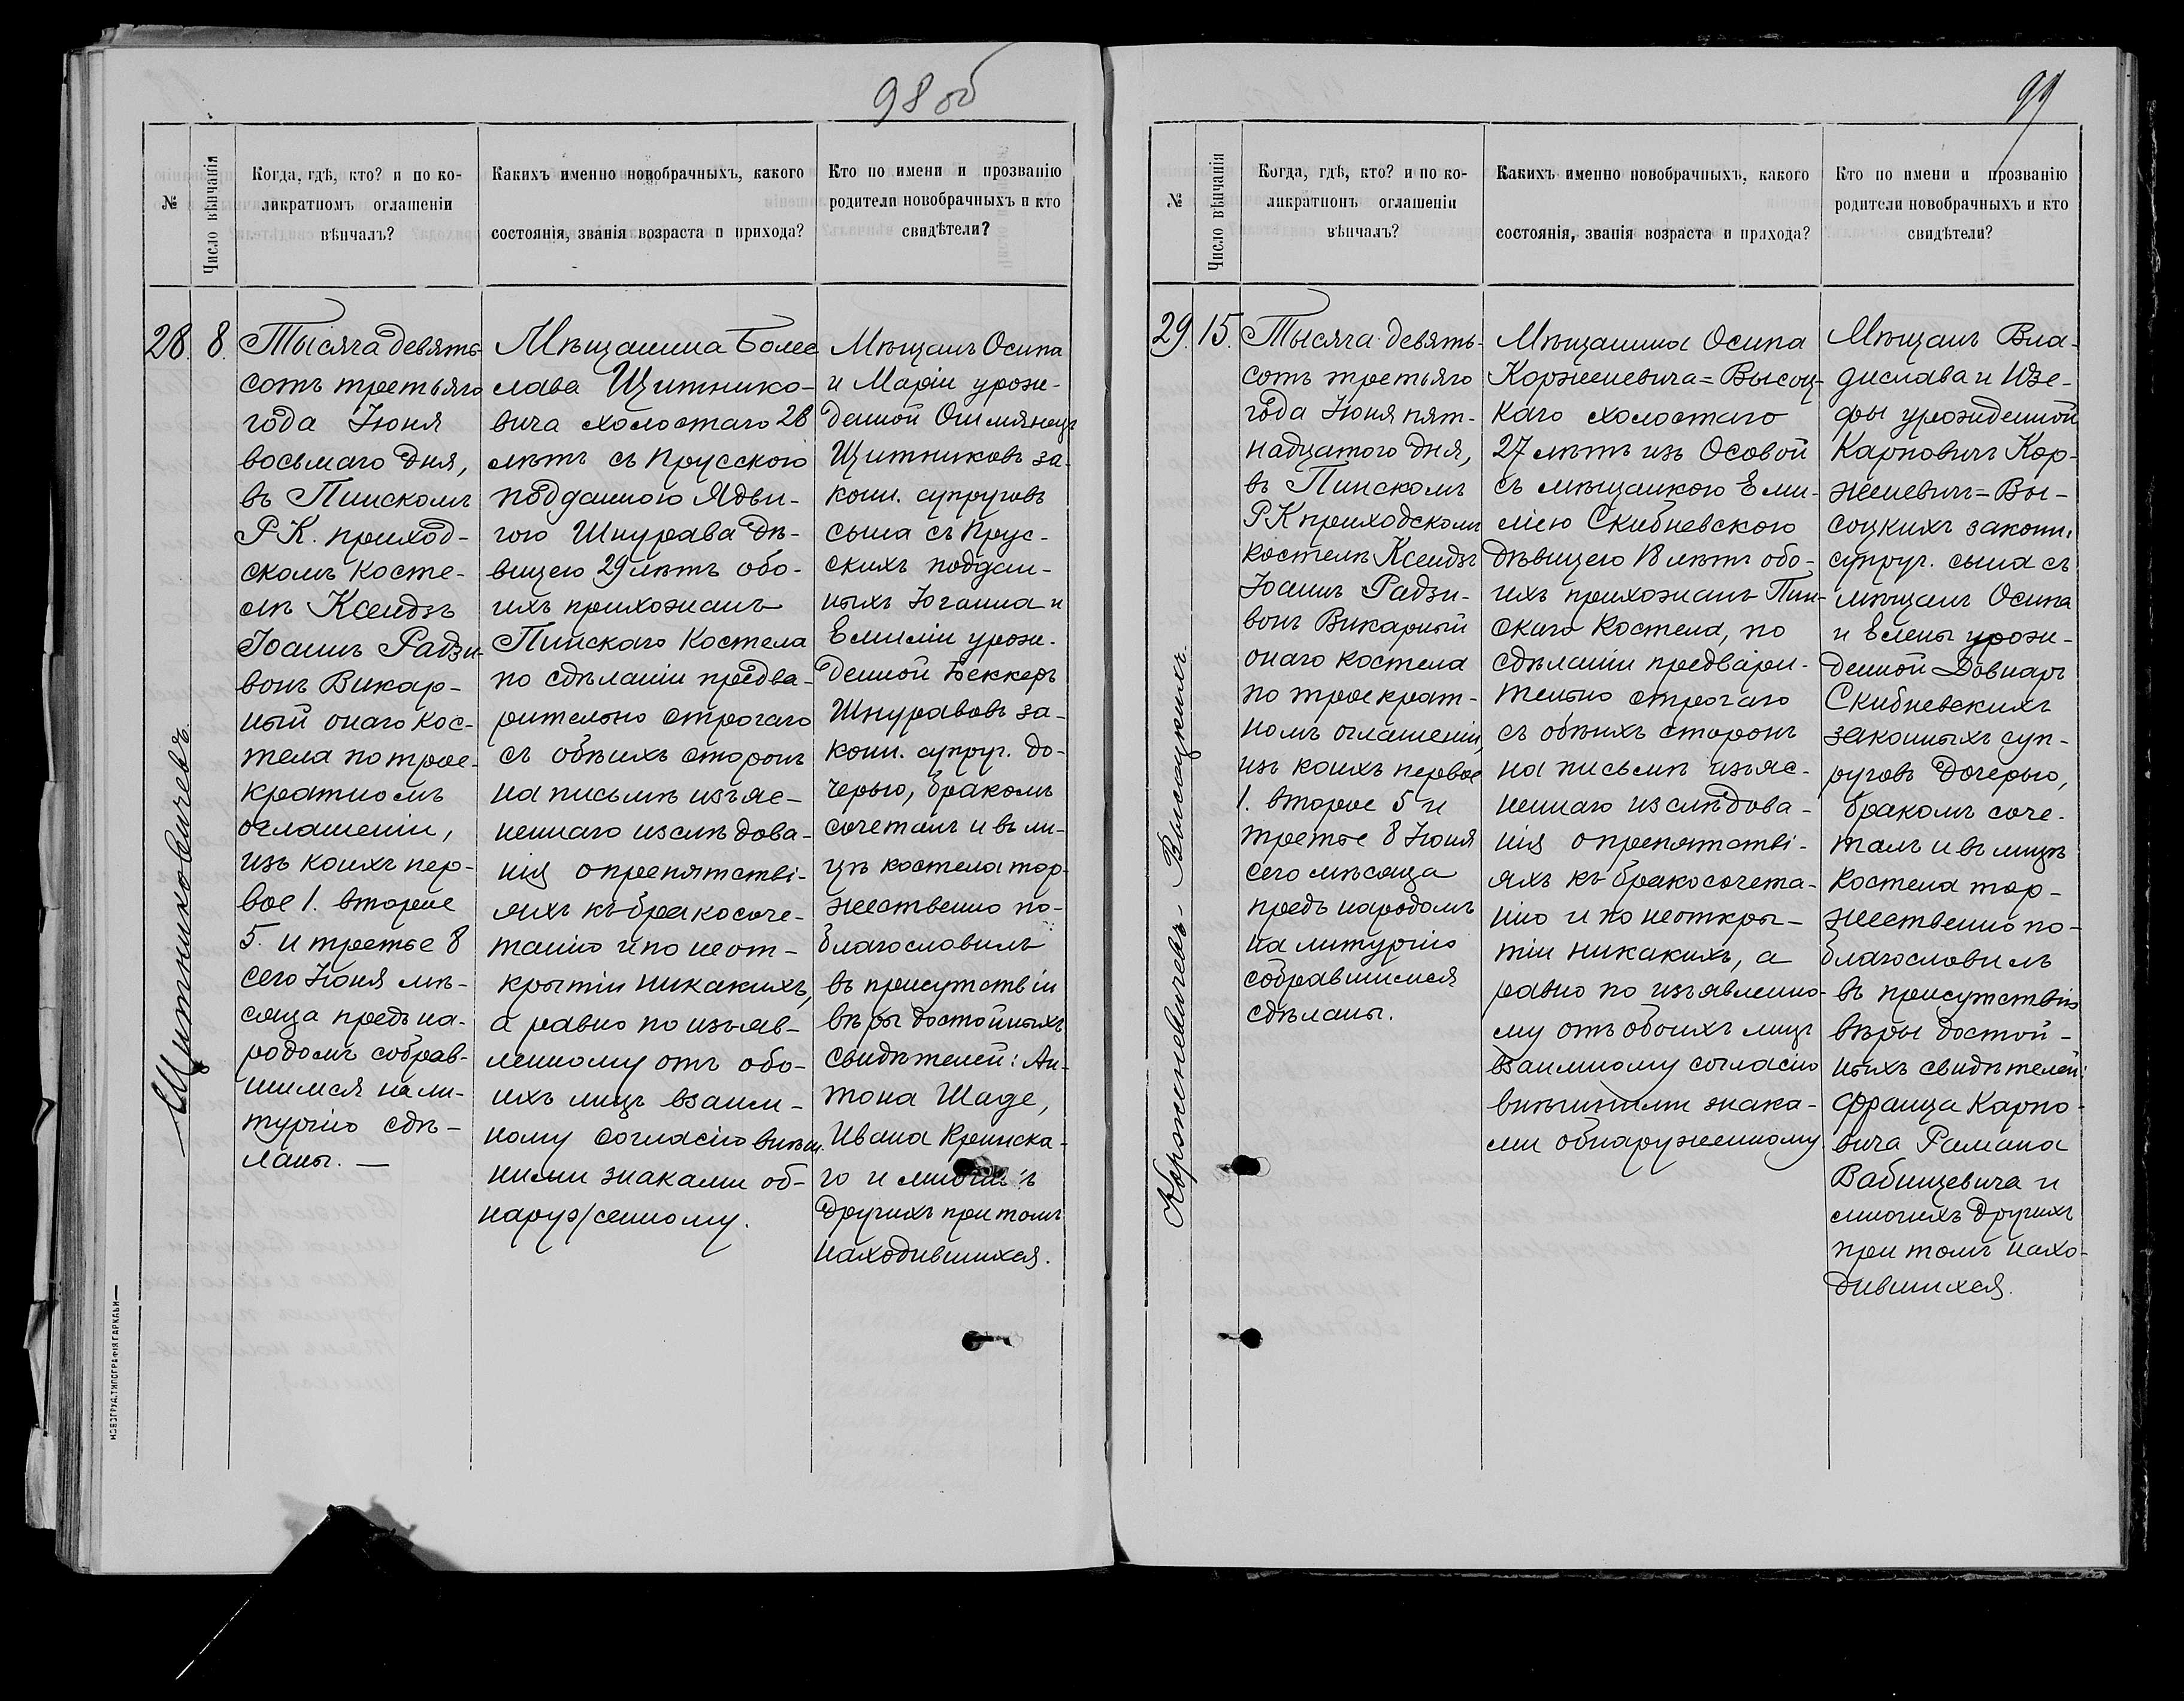 98 об
№
Число вѣнчанія
Когда, гдѣ, кто? и по ко-
ликратномъ оглашеніи
вѣнчалъ?
Какихъ именно новобрачныхъ, какого
состоянія, званія возраста и прихода?
Кто по имени и прозванію
родители новобрачныхъ и кто
свидѣтели?
28.
8.
Щитниковичевъ.
Тысяча девять-
сотъ третьяго
года Іюня
восьмаго дня,
въ Пинскомъ
Р. К. приход-
скомъ косте-
лѣ Ксендзъ
Іоаннъ Радзи-
вонъ Викар-
ный онаго кос-
тела по трое-
кратномъ
оглашеніи,
изъ коихъ пер-
вое 1. второе
5. и третье 8
сего Іюня мѣ-
сяца предъ на-
родомъ собрав-
шимся на ли-
тургію сдѣ-
ланы. —
Мѣщанина Болес
лава Щитнико-
вича холостаго 28
лѣтъ съ Прусскою
подданною Ядви-
гою Шнурава дѣ-
вицею 29 лѣтъ обо-
ихъ прихожанъ
Пинскаго Костела
по сдѣланіи предва-
рительно строгаго
съ обѣихъ сторонъ
на письмѣ изъяс-
неннаго изслѣдова-
нія о препятстві-
яхъ къ бракосоче-
танію и по неот-
крытіи никакихъ,
а равно по изъяв-
ленному отъ обо-
ихъ лицъ взаим-
ному согласію внѣш.
ними знаками об-
наруженному.
Мѣщанъ Осипа
и Маріи урож-
денной Ошмянецъ
Щитниковъ за-
конн. супруговъ
сына съ Прус-
скихъ поддан-
ныхъ Іоганна и
Емиліи урож-
денной Беккеръ
Шнуравовъ за-
конн. супруг. до-
черью, бракомъ
сочеталъ и въ ли-
цѣ костела тор-
жественно по-
благословилъ
въ присутствіи
вѣры достойныхъ
свидѣтелей: Ан-
тона Шаде,
Ивана Криска-
го и многихъ
другихъ при томъ
находившихся.
НОВОГРУД. ТИПОГРАФІЯ ГАРКАВИ
99
№
Число вѣнчанія
Когда, гдѣ, кто? и по ко-
ликратномъ оглашеніи
вѣнчалъ?
Какихъ именно новобрачныхъ, какого
состоянія, званія возраста и прихода?
Кто по имени и прозванію
родители новобрачныхъ и кто
свидѣтели?
29.
15.
Корженевичевъ-Высоцкихъ.
Тысяча девять-
сотъ третьяго
года Іюня пят-
надцатого дня,
въ Пинскомъ
Р К приходскомъ
костелѣ Ксендзъ
Іоаннъ Радзи-
вонъ Викарный
онаго костела
по троекрат-
номъ оглашеніи,
изъ коихъ первое
1. второе 5 и
третье 8 Іюня
сего мѣсяца
предъ народомъ
на литургію
собравшимся
сдѣланы.
Мѣщанина Осипа
Корженевича=Высоц-
каго холостаго
27 лѣтъ изъ Осовой
съ мѣщанкою Еми-
ліею Скибневскою
дѣвицею 18 лѣтъ обо-
ихъ прихожанъ Пин-
скаго Костела, по
сдѣланіи предвари-
тельно строгаго
съ обѣихъ сторонъ
на письмѣ изъяс-
неннаго изслѣдова-
нія о препятстві-
яхъ къ бракосочета-
нію и по неоткры-
тіи никакихъ, а
равно по изъявленно-
му отъ обоихъ лицъ
взаимному согласію
внѣшними знака-
ми обнаруженному.
Мѣщанъ Вла-
дислава и Юзе-
фы урожденной
Карповичъ Кор-
женевичъ=Вы-
соцкихъ законн.
супруг. сына съ
мѣщанъ Осипа
и Елены урож-
денной Довнаръ
Скибневскихъ
законныхъ суп-
руговъ дочерью,
бракомъ соче-
талъ и въ лицѣ
Костела тор-
жественно по-
благословилъ
въ присутствіи
вѣры достой-
ныхъ свидѣтелей:
Франца Карпо-
вича Рамана
Вабищевича и
многихъ другихъ
при томъ нахо-
дившихся.